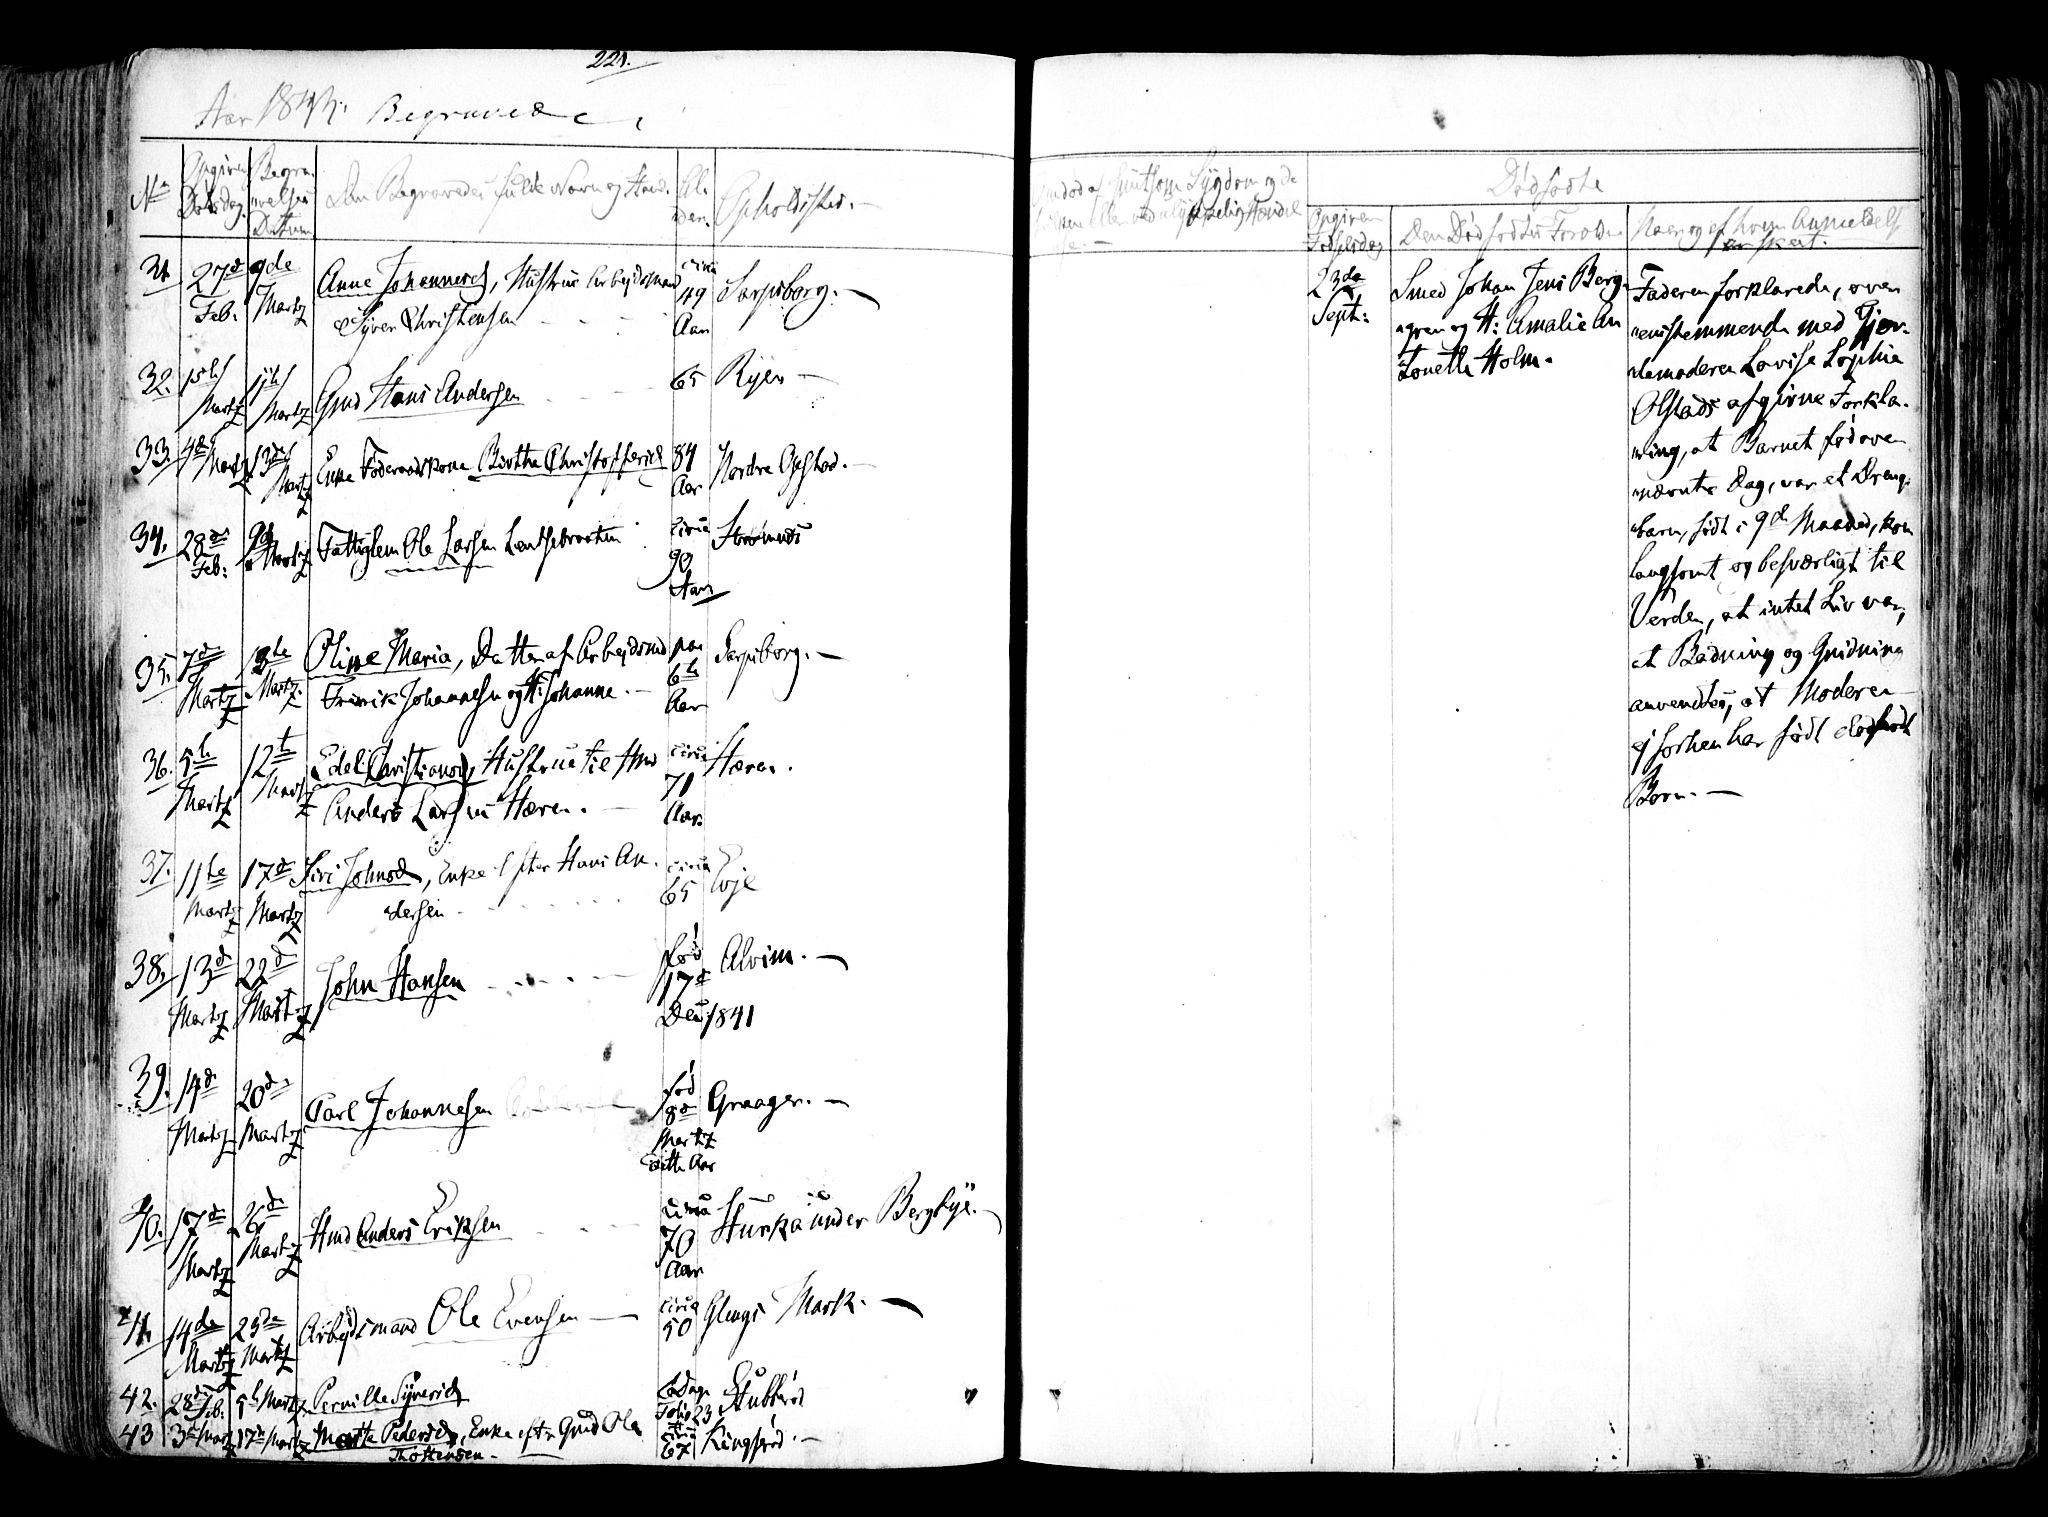 221.
Aar 184 Begravede
No
Opgiven Dødsdag.
Begravelses Datum
Den Begravedes fulde Navn og Stand.
Alder.
Opholdssted.
31 27de Feb. 9de Martz Anne Johannesd, Hustrue Arbejdsmand circa 49 Aar Sarpsborg.
Syver Christensen
32. 5te Martz 11te Martz Gmd Hans Andersen 65 Ryen
33. 4de Martz 13de Martz Enke Føderaadskone Birthe Christoffersd 84 Aar Nordre Opstad.
34. 28de Feb: 9de Martz Fattiglem Ole Larsen circa 90 Aar
35. 7de Martz 13te Martz. Oline Maria, Datter af Arbejdsmd paa 6te Aar Sarpsborg.
Fredrik Johannesen og H: Johanne.
36. 5te Martz 12te Martz Edel Christiansd, Hustrue til Gmd circa 71 Aar. Hæren.
Anders Larsen Hæren.
37. 11te Martz 17de Martz Siri Johnsd, Enke efter Hans An- circa 65 Evje
dersen
38. 13de Martz 22de Martz John Hansen fød 17de Dec: 1841 Alvim.
39. 14de Martz 20de Martz Carl Johannesen fød 8de Martz dette Aar Graager.
40. 17de Martz 26de Martz Gmd Anders Eriksen circa 70 Aar under Bergbye.
41. 14de Martz 25de Martz Arbejdsmand Ole Evensen circa 50 Glengs Mark.
42. 28de Feb. 5te Martz Pernille Syversd Folio 23
43 3de Martz 17de Martz Marthe Pedersd, Enke efter Gmd Ole circa 67
Thostensen
Dødfødte
Opgiven Fødselsdag
Den Dødfødtes Forældre
Naar og af hvem Anmeldelse
er skeet.
23de Sept:
Smed Johan Jens Berg-
gren og H: Amalie An-
tonette Holm.
Faderen forklarede, over-
eenstemmende med Gjor-
demoderen Lovise Sophie
Olstads afgivne Forkla-
ring, at Barnet fød oven-
nævnte Dag, var et Drenge-
barn, født i 9de Maaned, kom
langsomt og besværligt til
Verden, at intet Liv var,
at Badning og Gnidning
anvendtes, at Moderen
ej forhen har født dødfødt
Børn.